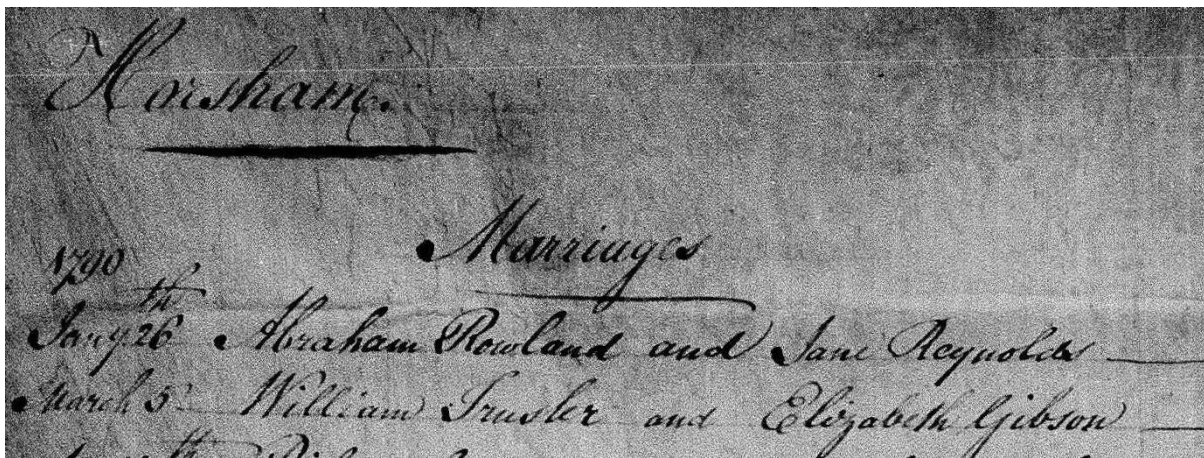 Horsham.
Marriages
1790
Jany. 26th Abraham Rowland and Jane Reynolds
March 5 William Trusler and Elizabeth Gibson